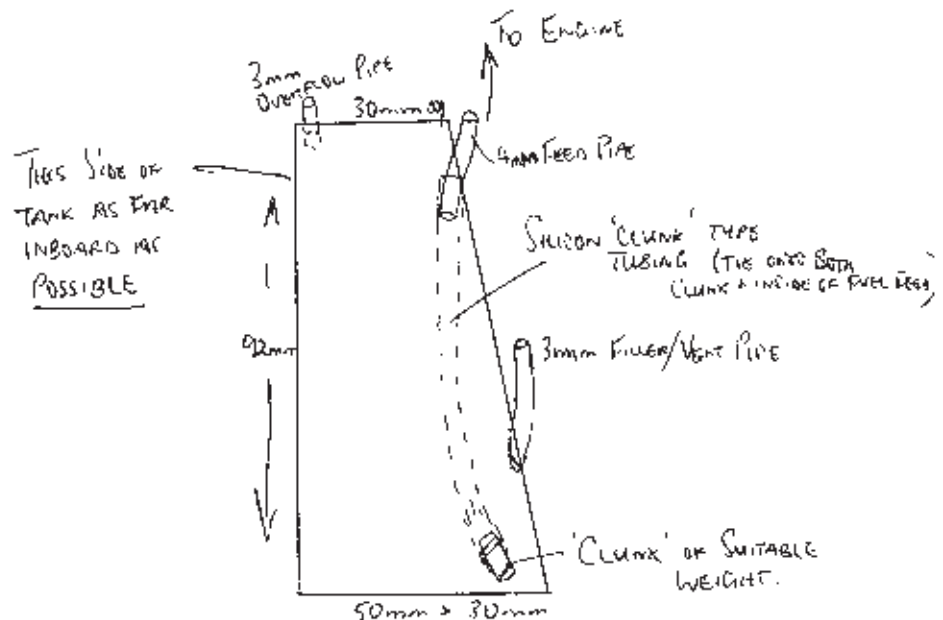 TO ENGINE
3mm
OVERFLOW PIPE
30mm sq
4mm FEED PIPE
THIS SIDE OF
TANK AS FAR
INBOARD AS
POSSIBLE
SILICON 'CLUNK' TYPE
TUBING (TIE ONTO BOTH
CLUNK & INSIDE OF FUEL FEED)
92mm
3mm FILLER/VENT PIPE
'CLUNK' OF SUITABLE
WEIGHT.
50mm × 30mm